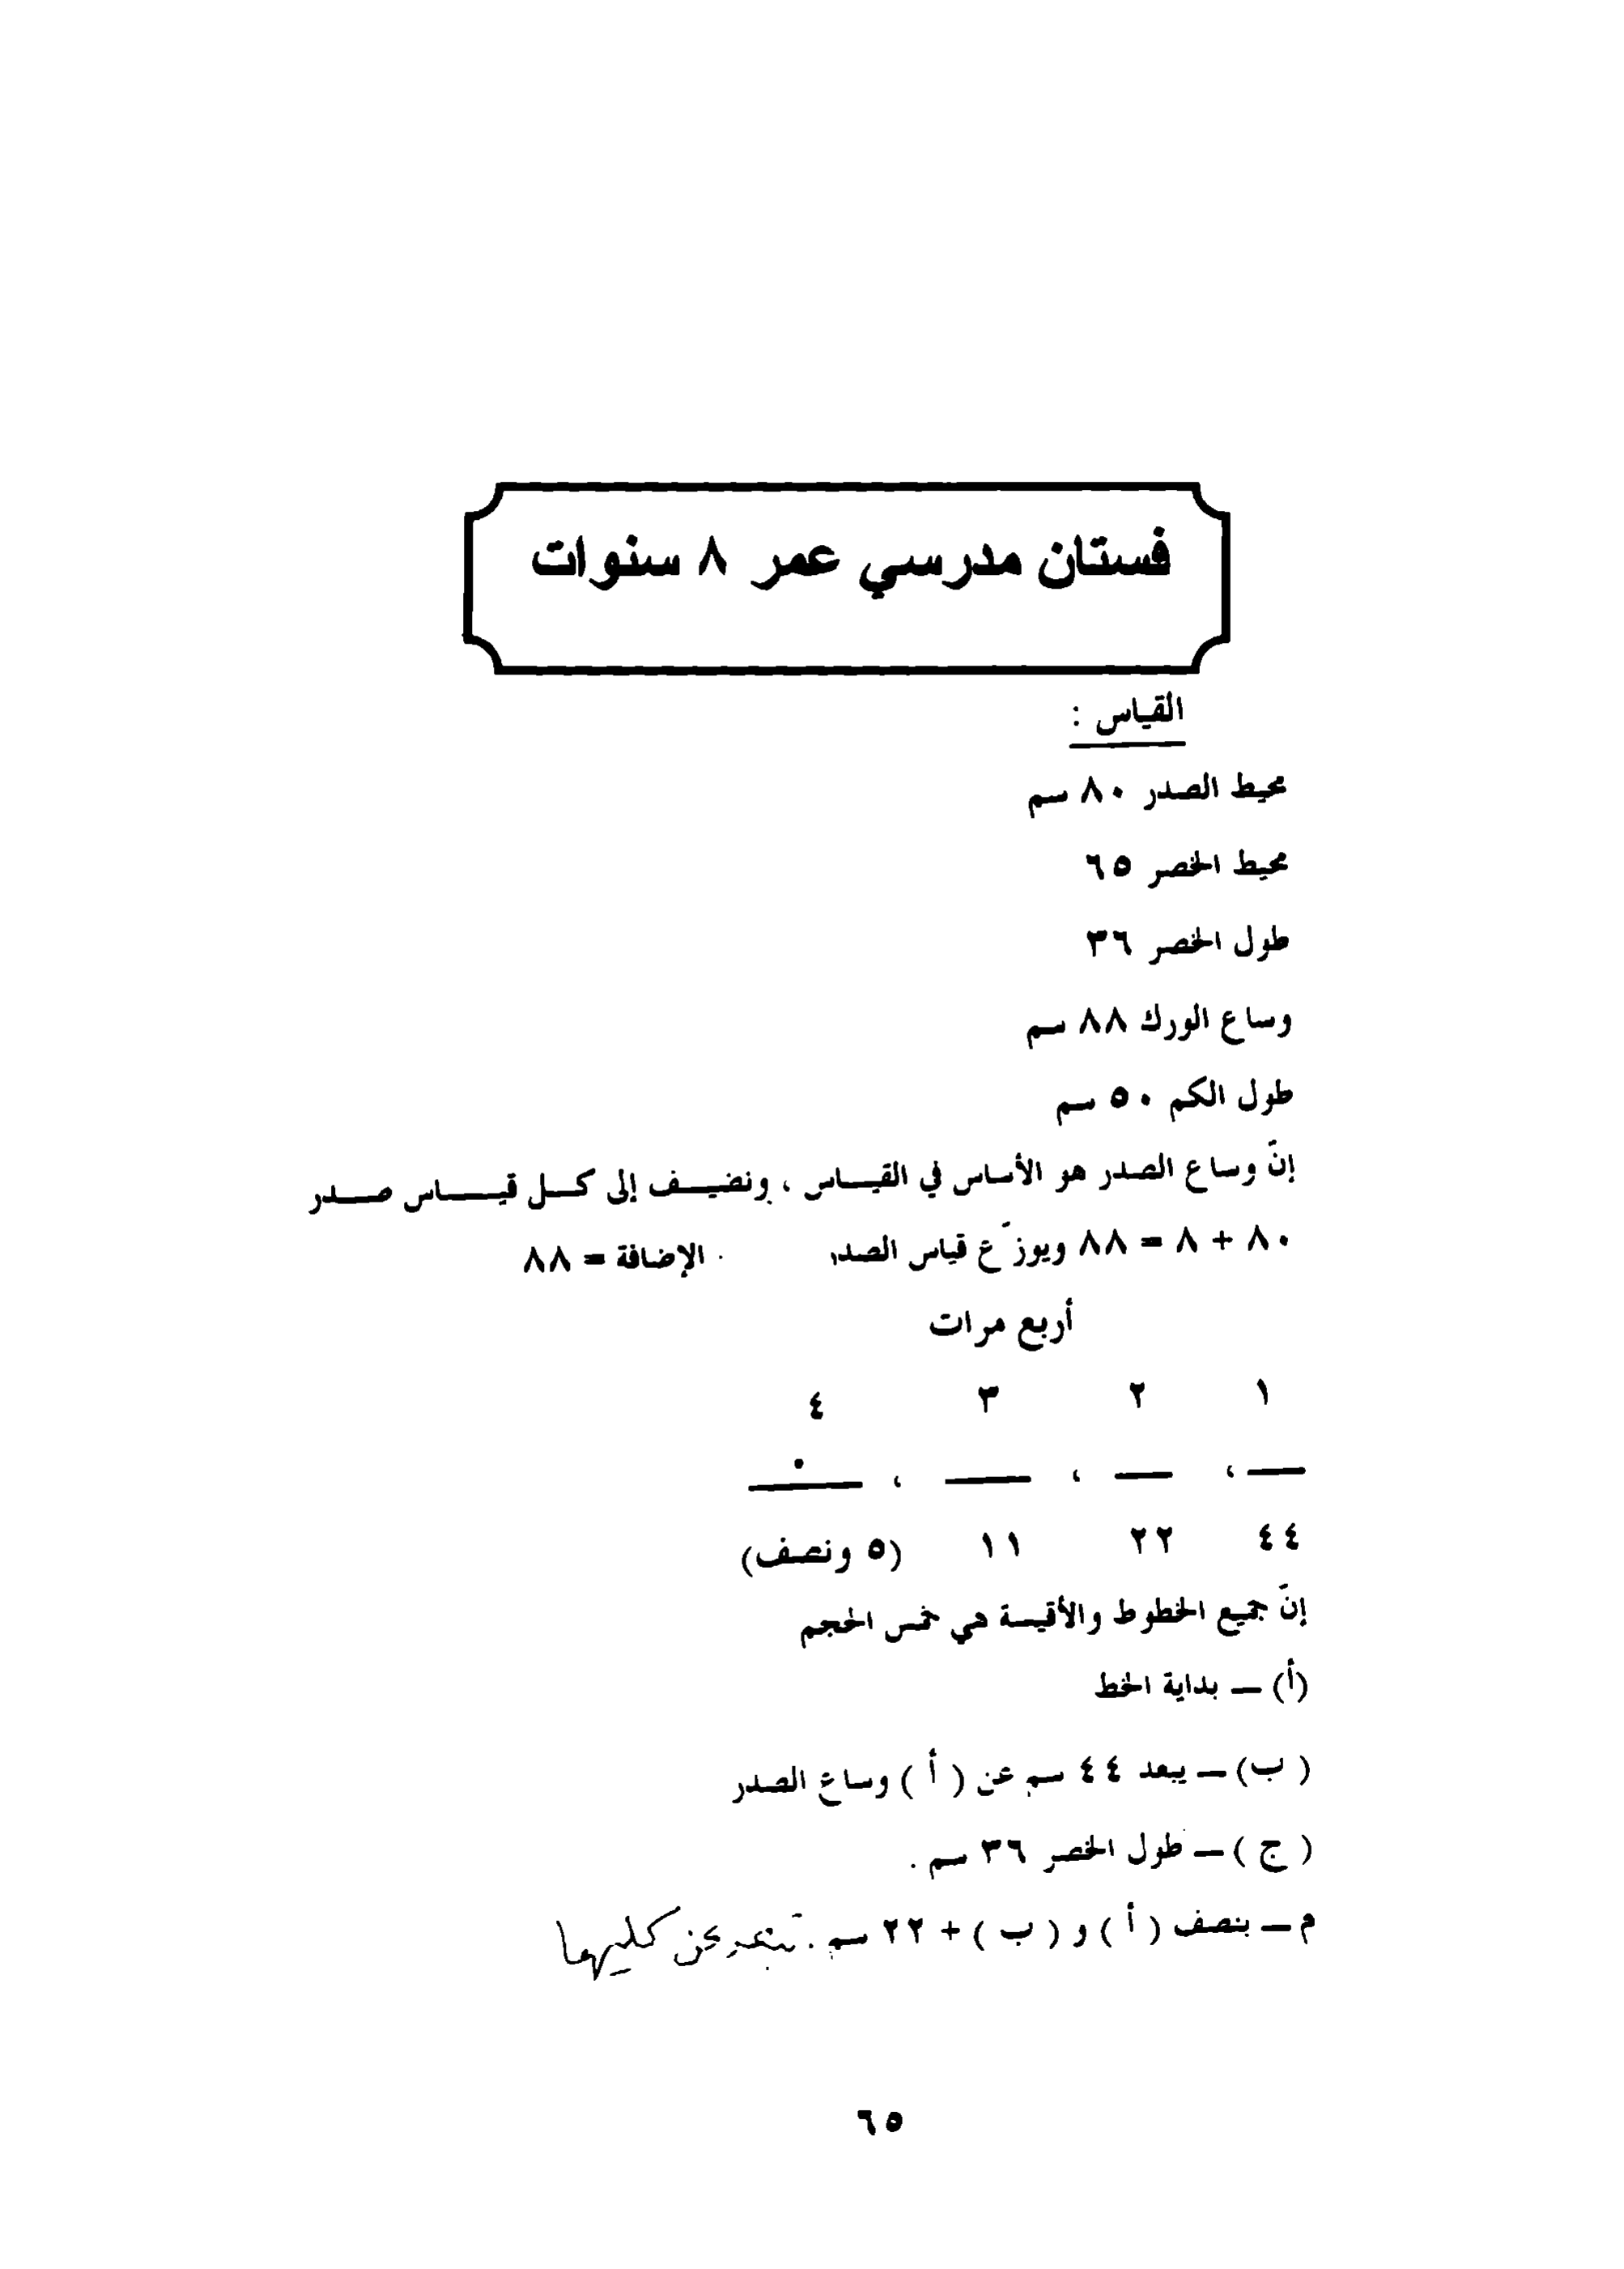 فستان مدرسي عمر ٨ سنوات
القياس :
محيط الصدر ٨٠ سم
محيط الخصر ٦٥
طول الخصر ٣٦
وساع الورك ٨٨ سم
طول الكم ٥٠ سم
إنّ وساع الصدر هو الأساس في القياس ، ونضيف إلى كل قياس صدر
٨٠ + ٨ = ٨٨ ويوزّع قياس الصدر الإضافة = ٨٨
أربع مرات
١ ٢ ٣ ٤
ــ ، ــ ، ــ ، ــ
٤٤ ٢٢ ١١ (٥ ونصف)
إنّ جميع الخطوط والأقيسة هي خمس الحجم
(أ) ــ بداية الخط
( ب) ــ يبعد ٤٤ سم عن ( أ ) وساع الصدر
( ج ) ــ طول الخصر ٣٦ سم .
م ــ بنصف ( أ ) و ( ب ) + ٢٢ سم . تبعد عن كليهما
٦٥